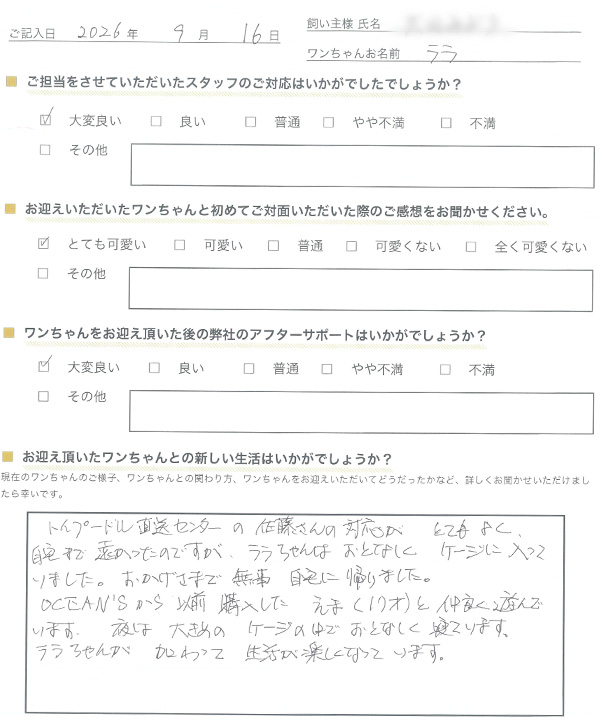 ご記入日 2026年 4月 16日
飼い主様 氏名
ワンちゃんお名前 ララ
■ ご担当をさせていただいたスタッフのご対応はいかがでしたでしょうか？
☑ 大変良い □ 良い □ 普通 □ やや不満 □ 不満
□ その他
■ お迎えいただいたワンちゃんと初めてご対面いただいた際のご感想をお聞かせください。
☑ とても可愛い □ 可愛い □ 普通 □ 可愛くない □ 全く可愛くない
□ その他
■ ワンちゃんをお迎え頂いた後の弊社のアフターサポートはいかがでしょうか？
☑ 大変良い □ 良い □ 普通 □ やや不満 □ 不満
□ その他
■ お迎え頂いたワンちゃんとの新しい生活はいかがでしょうか？
現在のワンちゃんのご様子、ワンちゃんとの関わり方、ワンちゃんをお迎えいただいてどうだったかなど、詳しくお聞かせいただけまし
たら幸いです。
トイプードル直送センターの佐藤さんの対応が とてもよく、
自宅まで遠かったのですが、ララちゃんは おとなしく ケージに入って
いました。おかげさまで 無事 自宅に帰りました。
OCEAN'Sから 以前 購入した えま(17才)と 仲良く遊んで
います。 夜は 大きめの ケージの中で おとなしく 寝ています。
ララちゃんが 加わって 生活が楽しくなって います。